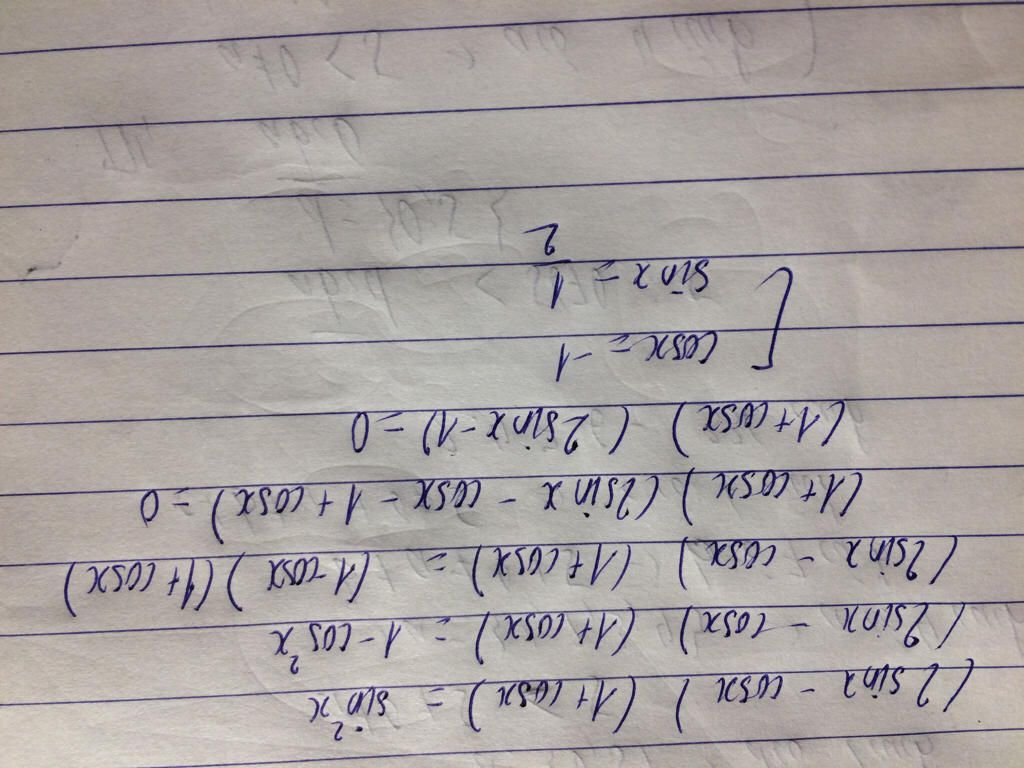 (2sinx - cosx) (1+cosx) = sin²x
(2sinx - cosx) (1+cosx) = 1 - cos²x
(2sinx - cosx) (1+cosx) = (1-cosx)(1+cosx)
(1+cosx)(2sinx - cosx - 1 + cosx) = 0
(1+cosx) (2sinx - 1) = 0
[ cosx = -1
sinx = 1/2